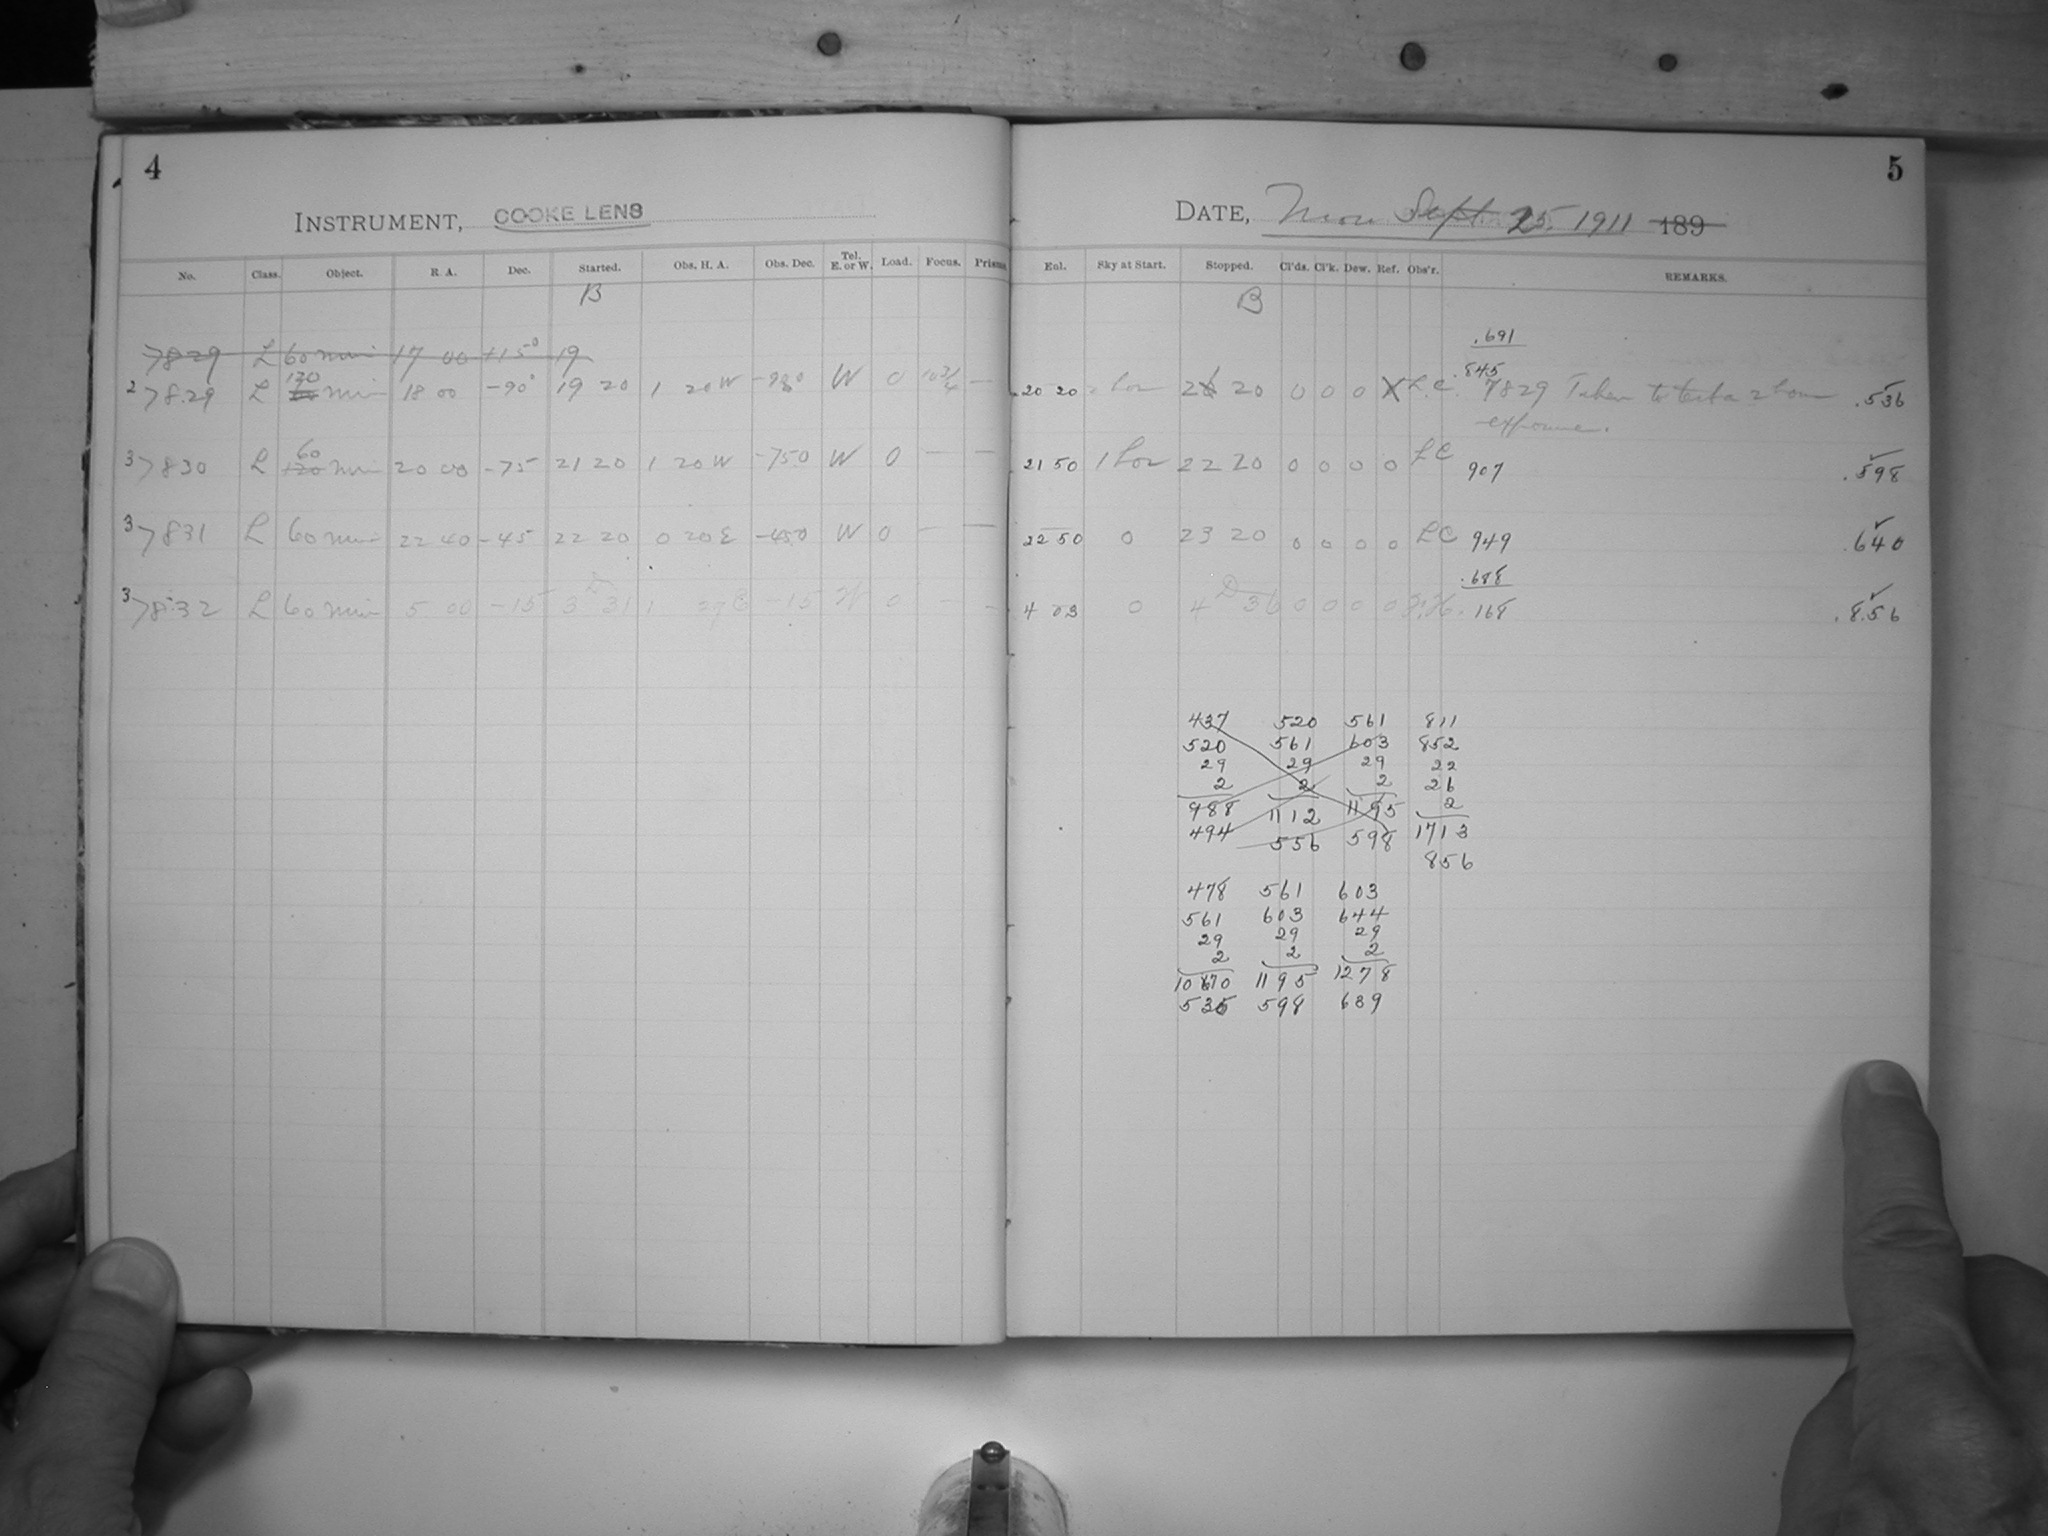 4
INSTRUMENT, COOKE LENS
No. Class. Object. R. A. Dec. Started. Obs. H. A. Obs. Dec. Tel. E. or W. Load. Focus. Prisms
B
7829 L 60 min 17 00 +15° 19
2 7829 L 120 min 18 00 -90° 19 20 1 20 W W 0 10 3/4 —
3 7830 L 60 min 20 00 -75 21 20 1 20 W -75 0 W 0 — —
3 7831 L 60 min 22 40 -45 22 20 0 20 E -45 0 W 0 — —
3 7832 L 60 min 5 00 -15 3 31 1 39 E -15 W 0 — —
5
DATE, Mon Sept. 25, 1911 189
Eql. Sky at Start. Stopped. Cl'ds. Cl'k. Dew. Ref. Obs'r. REMARKS.
B
.691
.845
20 20 2 hour 21 20 0 0 0 X L.C. 7829 Taken to test a 2 hour .536
exposure.
21 50 1 hour 22 20 0 0 0 0 LC 907 .598
22 50 0 23 20 0 0 0 0 LC 949 .640
.688
4 03 0 4 36 0 0 0 0 .168 .856
437 520 561 811
520 561 603 852
29 29 29 22
2 2 2 26
988 1112 1195 2
494 556 598 1713
856
478 561 603
561 603 644
29 29 29
2 2 2
1070 1195 1278
535 598 639